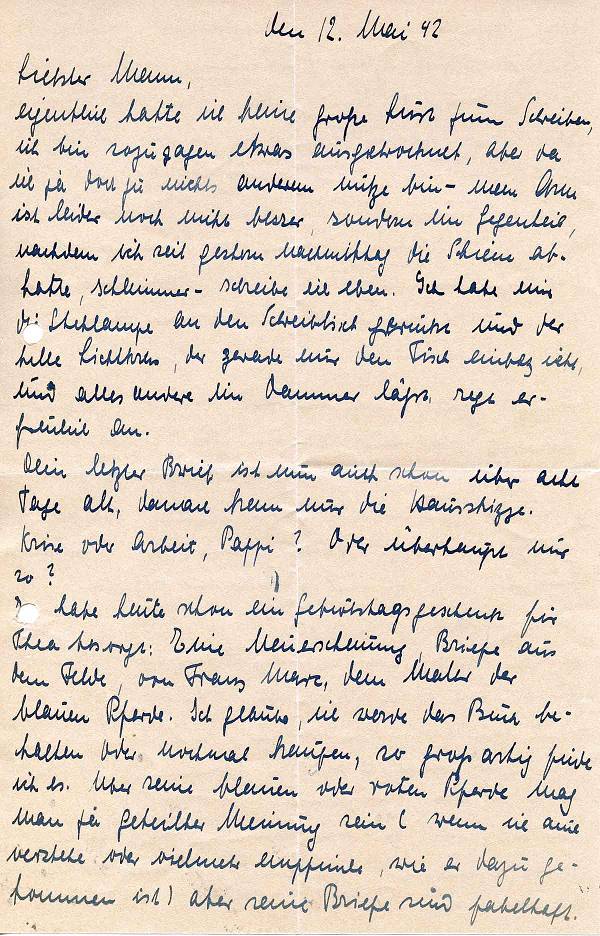 den 12. Mai 42
Liebster Mann,
eigentlich hatte ich keine große Lust zum Schreiben,
ich bin sozusagen etwas ausgetrocknet, aber da
ich ja doch zu nichts anderem nütze bin – mein Arm
ist leider noch nicht besser, sondern im Gegenteil,
nachdem ich seit gestern Nachmittag die Schiene ab-
hatte, schlimmer – schreibe ich eben. Ich habe mir
die Stehlampe an den Schreibtisch gerückt und der
helle Lichtkreis, der gerade nur den Tisch einbezieht,
und alles andere im Dämmer lässt, regt er-
freulich an.
Dein letzter Brief ist nun auch schon über acht
Tage alt, danach kam nur die Hausskizze.
Krise oder Arbeit, Pappi? Oder überhaupt nur
so?
habe heute schon ein Geburtstagsgeschenk für
Thea besorgt: Eine Neuerscheinung, Briefe aus
dem Felde, von Franz Marc, dem Maler der
blauen Pferde. Ich glaube, ich werde das Buch be-
halten oder nochmal kaufen, so großartig finde
ich es. Über seine blauen oder roten Pferde mag
man ja geteilter Meinung sein (wenn ich auch
verstehe oder vielmehr empfinde, wie er dazu ge-
kommen ist) aber seine Briefe sind fabelhaft.